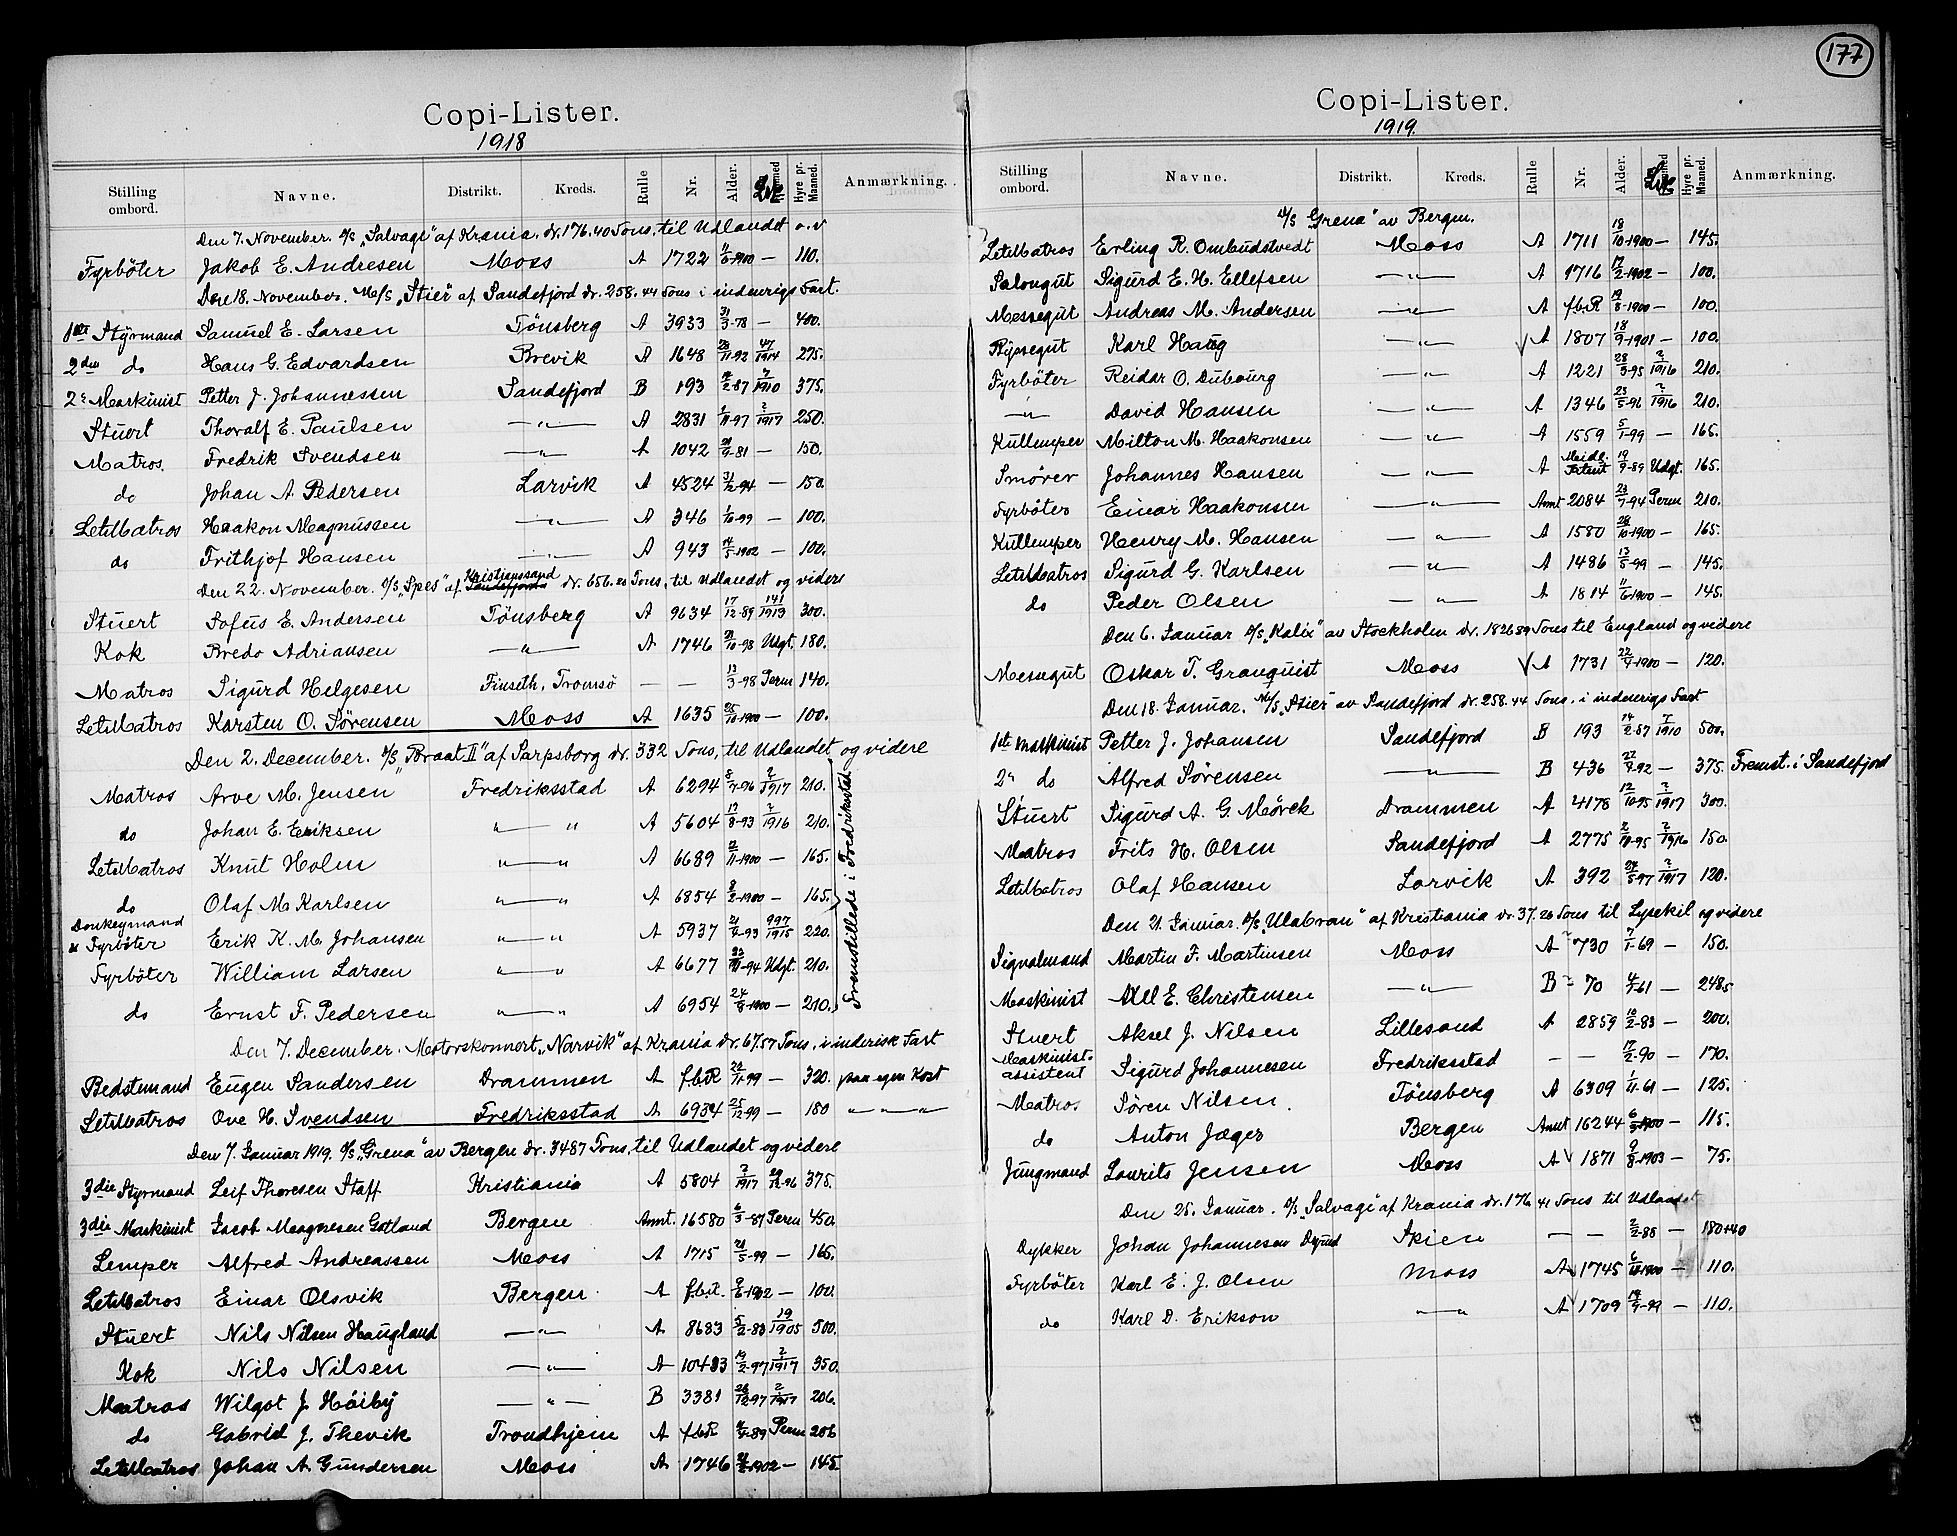 177
Copi-Lister.
1918
Stilling ombord. Navne. Distrikt. Kreds. Rulle Nr. Alder. Hyre pr. Maaned. Anmærkning.
Den 7. November. D/S „Salvage“ af Krania. dr. 176.40 Tons, til Udlandet o.v
Fyrböter Jakob E. Andresen Moss A 1722 11/6-1900 — 110.
Den 18. November. M/S „Stier“ af Sandefjord dr. 258.44 Tons i indenrigs Fart.
1ste Styrmand Samuel E. Larsen Tönsberg A 3933 31/3-78 — 400.
2den do Hans G. Edvardsen Brevik A 1648 28/11-92 47/1914 275.
2n Maskinist Petter J. Johannessen Sandefjord B 193 14/2-87 7/1910 375.
Stuert Thoralf E. Paulsen —"— A 2831 2/11-97 2/1917 250.
Matros. Fredrik Svendsen —"— A 1042 21/9-81 — 150.
do Johan A. Pedersen Larvik A 4524 31/12-94 — 150.
LetMatros Haakon Magnussen —"— A 346 1/10-99 — 100.
do Frithjof Hansen —"— A 943 14/5-1902 — 100.
Den 22. November. D/S „Spes“ af Kristianssand dr. 656.20 Tons, til Udlandet og videre
Stuert Sofus E. Andersen Tönsberg A 9634 17/12-89 141/1913 300.
Kok Bredo Adriansen —"— A 1746 21/10-98 Udgt. 180.
Matros Sigurd Helgesen Finseth, Tromsö — — 13/3-98 Perm 140.
LetMatros Karsten O. Sørensen Moss A 1635 25/10-1900 — 100.
Den 2. December. D/S „Braat II“ af Sarpsborg dr. 332 Tons, til Udlandet og videre
Matros Arve M. Jensen Fredriksstad A 6294 5/7-96 2/1917 210.
do Johan E. Eriksen "—" A 5604 17/8-93 2/1916 210.
LetMatros Knut Holm "—" A 6689 12/11-1900 — 165.
do Olaf M. Karlsen "—" A 6854 8/2-1900 — 165.
Donkeymand & Fyrböter Erik K. M. Johansen "—" A 5937 21/4-93 997/1915 220.
Fyrböter William Larsen "—" A 6677 22/11-94 Udgt. 210.
do Ernst F. Pedersen "—" A 6954 24/8-1900 — 210.
Fremstillede i Fredrikstad
Den 7. December. Motorskonnert „Narvik“ af Krania dr. 67.57 Tons, i inderisk Fart
Bedstemand Eugen Sandersen Drammen A f.b.R 22/11-99 — 320. paa egen Kost
LetMatros Ove H. Svendsen Fredriksstad A 6934 25/12-99 — 180 "—"—"
Den 7. Januar 1919. D/S „Grena“ av Bergen dr. 3487 Tons, til Udlandet og videre
3die Styrmand Leif Thoresen Staff Kristiania A 5804 2/1917 29/12-96 375.
3die Maskinist Jacob Maagnesen Gotland Bergen Annt. 16580 6/3-87 Perm 450.
Lemper Alfred Andreassen Moss A 1715 21/5-99 — 165.
LetMatros Einar Olsvik Bergen A f.b.R. 9/6-1902 — 100.
Stuert Nils Nilsen Haugland —"— A 8683 5/2-80 19/1905 500.
Kok Nils Nilsen —"— A 10483 19/2-97 2/1917 350.
Matros Wilgot J. Höiby —"— B 3381 26/12-97 2/1917 206.
do Gabriel J. Thevik Trondhjem A f.b.R 4/4-89 Perm 206
LetMatros Johan A. Gundersen Moss A 1746 21/2-1902 — 145.
Copi-Lister.
1919.
Stilling ombord. Navne. Distrikt. Kreds. Rulle Nr. Alder. Hyre pr. Maaned. Anmærkning.
D/S „Grena“ av Bergen.
LetMatros Erling R. Ombudstvedt Moss A 1711 18/10-1900 — 145.
Salongut Sigurd E. H. Ellefsen —"— A 1716 17/2-1902 — 100.
Messegut Andreas M. Andersen —"— A f.b.R 19/8-1900 — 100.
Rypsegut Karl Haug —"— A 1807 18/9-1901 — 100.
Fyrböter Reidar O. Dubourg —"— A 1221 28/3-95 2/1916 210.
—"— David Hansen —"— A 1346 23/5-96 2/1916 210.
Kullemper Milton M. Haakonsen —"— A 1559 5/1-99 — 165.
Smörer Johannes Hansen —"— A 19/9-89 Udgt. 165.
Fyrböter Einar Haakonsen —"— Annt 2084 23/7-94 Perm 210.
Kullemper Henry M. Hansen —"— A 1580 28/10-1900 — 165.
LetMatros Sigurd G. Karlsen —"— A 1486 13/5-99 — 145.
do Peder Olsen —"— A 1814 11/6-1900 — 145.
Den 6. Januar D/S „Kalix“ av Stockholm dr. 1826 59 Tons til England og videre
Messegut Oskar T. Granquist Moss A 1731 22/9-1900 — 120.
Den 18. Januar. M/S „Stier“ av Sandefjord dr. 258.44 Tons. i indenrigs Fart
1ste Maskinist Petter J. Johansen Sandefjord B 193 14/2-87 7/1910 500.
2n do Alfred Sørensen —"— B 436 27/9-92 — 375. Fremst. i Sandefjord
Stuert Sigurd A. G. Mörck Drammen A 4178 12/10-95 2/1917 300.
Matros Frits H. Olsen Sandefjord A 2775 2/10-95 2/1916 150.
LetMatros Olaf Hansen Larvik A 392 24/5-97 2/1917 120.
Den 21. Januar. D/S „Ulabrau“ af Kristiania dr. 37.26 Tons til Lysekil og videre
Signalmand Martin F. Martinsen Moss A 730 7/1-69 — 150.
Maskinist Axel E. Christensen —"— B 70 4/7-61 — 248.
Stuert Aksel J. Nilsen Lillesand A 2859 10/2-83 — 200.
Maskinist-assistent Sigurd Johannesen Fredriksstad — — 17/2-90 — 170.
Matros Sören Nilsen. Tönsberg A 6309 1/11-61 — 125.
do Anton Jæger Bergen Annt 16244 6/3-1900 — 115.
Jungmand Laurits Jensen Moss A 1871 9/8-1903 — 75.
Den 25. Januar. D/S „Salvage“ af Krania dr. 176 41 Tons til Udlandet
Dykker Johan Johannesen Skien — — 2/2-88 — 180+40
Fyrböter Karl E. J. Olsen Moss A 1745 6/10-1900 — 110.
do Karl D. Erikson —"— A 1709 19/9-99 — 110.